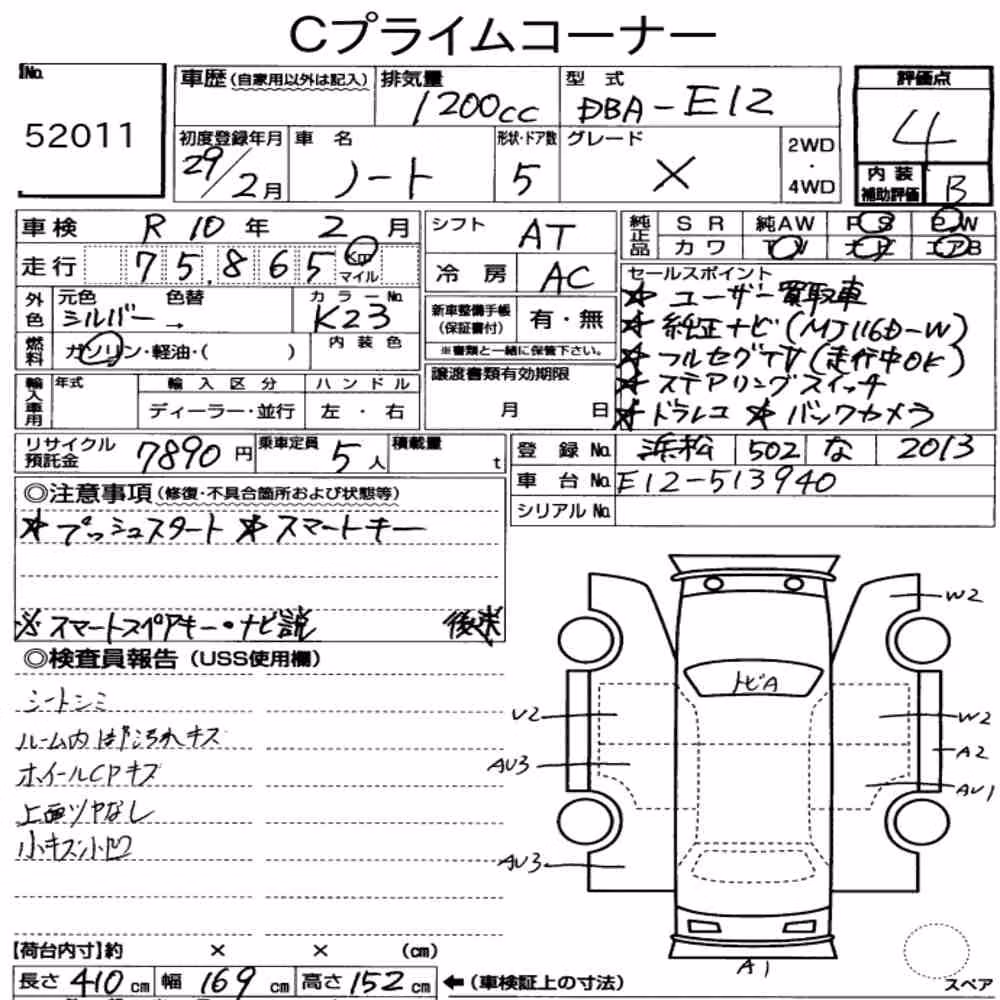 Cプライムコーナー
No. 52011
車歴 (自家用以外は記入)
排気量 1200cc
型式 DBA-E12
評価点 4
初度登録年月 29/2月
車名 ノート
形状・ドア数 5
グレード X
2WD・4WD
内装補助評価 B
車検 R10年 2月
走行 75,865 Km マイル
シフト AT
冷房 AC
純正品 SR 純AW PS PW
カワ TV ナビ エアB
外色 元色 シルバー → 色替
カラーNo. K23
燃料 ガソリン・軽油・( )
内装色
新車整備手帳(保証書付) 有・無
※書類と一緒に保管下さい。
セールスポイント
☆ ユーザー買取車
☆ 純正ナビ(MJ116D-W)
☆ フルセグTV(走行中OK)
☆ ステアリングスイッチ
☆ ドラレコ ☆ バックカメラ
輸入車用 年式 輸入区分 ハンドル
ディーラー・並行 左・右
譲渡書類有効期限
月 日
リサイクル預託金 7890円
乗車定員 5人
積載量 t
登録No. 浜松 502 な 2013
車台No. E12-513940
シリアルNo.
◎注意事項(修復・不具合箇所および状態等)
☆ プッシュスタート ☆ スマートキー
※ スマートスペアキー・ナビ説 後送
◎検査員報告(USS使用欄)
シートシミ
ルーム内 汚れキズ
ホイールCPキズ
上面ツヤなし
小キズ小凹
W2
トビA
U2
W2
A2
AU3
AU1
AU3
A1
【荷台内寸】約 × × (cm)
長さ 410cm 幅 169cm 高さ 152cm ←(車検証上の寸法)
スペア